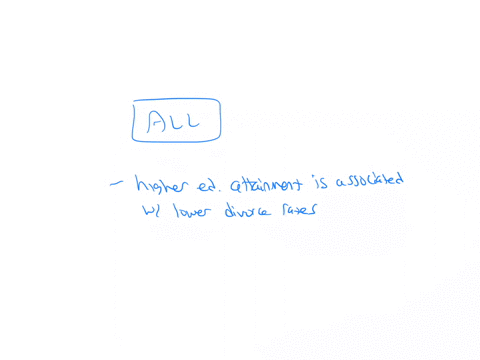 ALL
- higher ed. attainment is associated
w/ lower divorce rates